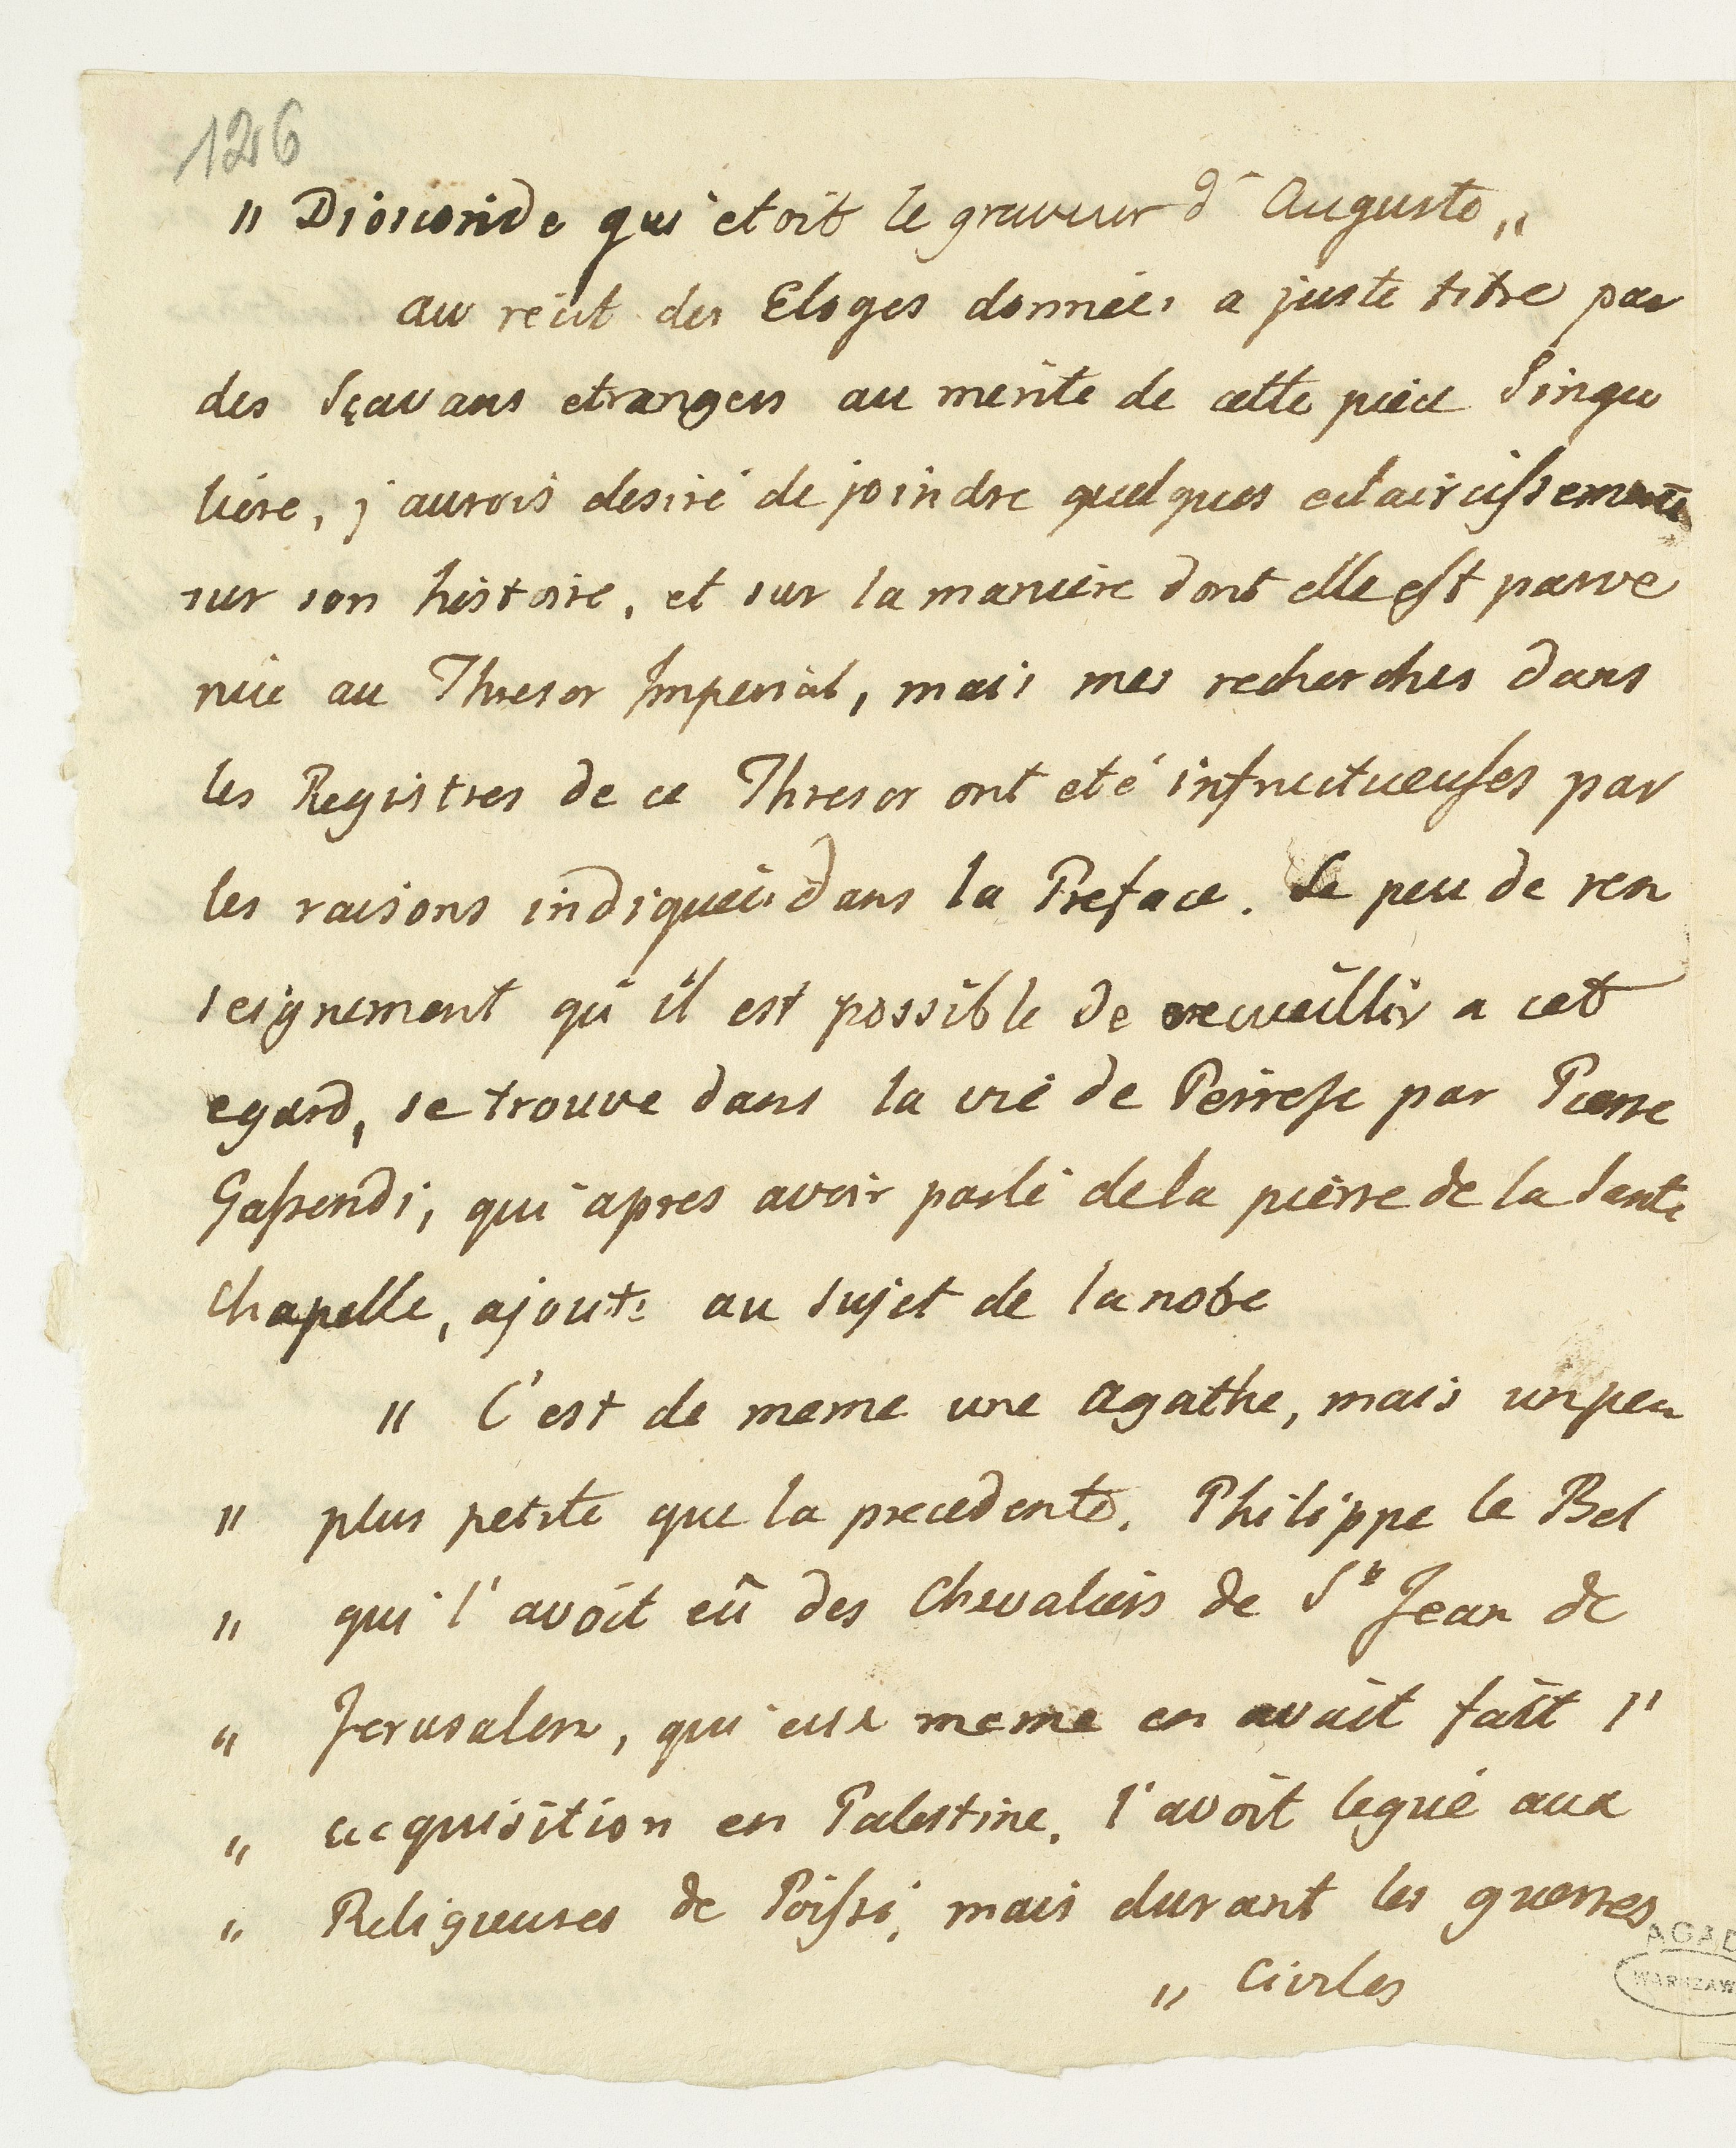 126
" Dioscoride qui etoit le graveur d'Auguste "
au recit des Eloges donnees a juste titre par
des sçavans etrangers au merite de cette piece singu
liere, j'aurois desiré de joindre quelques eclaircissements
sur son histoire, et sur la maniere dont elle est parve
nüe au Thresor Imperial, mais mes recherches dans
les Registres de ce Thresor ont eté infructueuses par
les raisons indiquées dans la Preface. Le peu de ren
seignement qu'il est possible de recueillir a cet
egard, se trouve dans la vie de Peiresc par Pierre
Gassendi, qui apres avoir parlé de la pierre de la Sante
Chapelle, ajoute au sujet de la notre
" C'est de meme une agathe, mais un peu
" plus petite que la precedente. Philippe le Bel
" qui l'avoit eû des Chevaliers de St Jean de
" Jerusalem, qui eux meme en avait fait l'
" acquisition en Palestine. l'avoit legué aux
" Religieuses de Poissi, mais durant les guerres
" Civiles
ACAD
WARSZAW